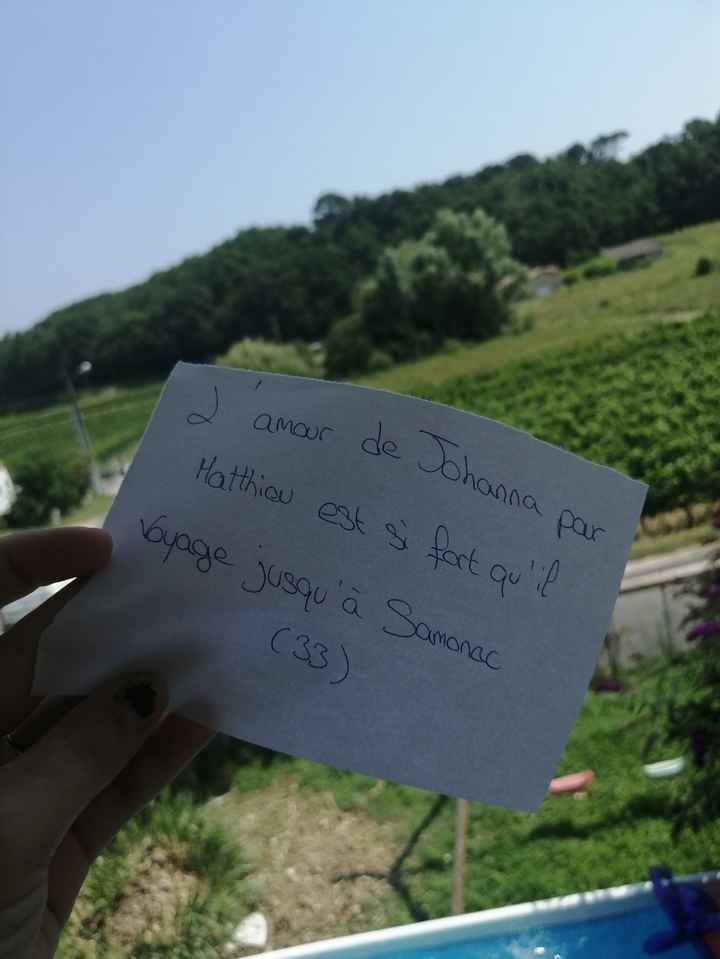 L'amour de Johanna pour
Matthieu est si fort qu'il
Voyage jusqu'à Samonac
(33)